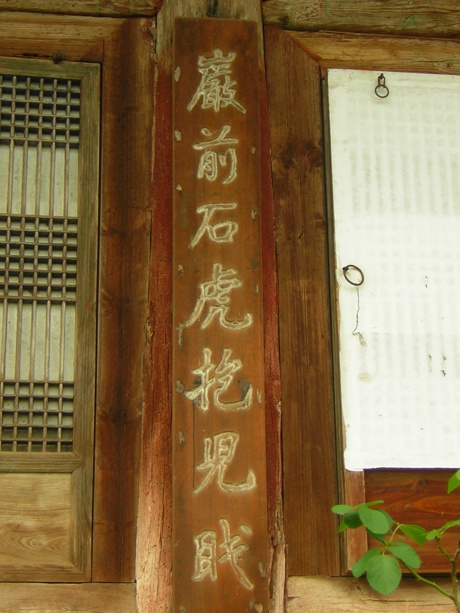 巖前石虎抱児眠